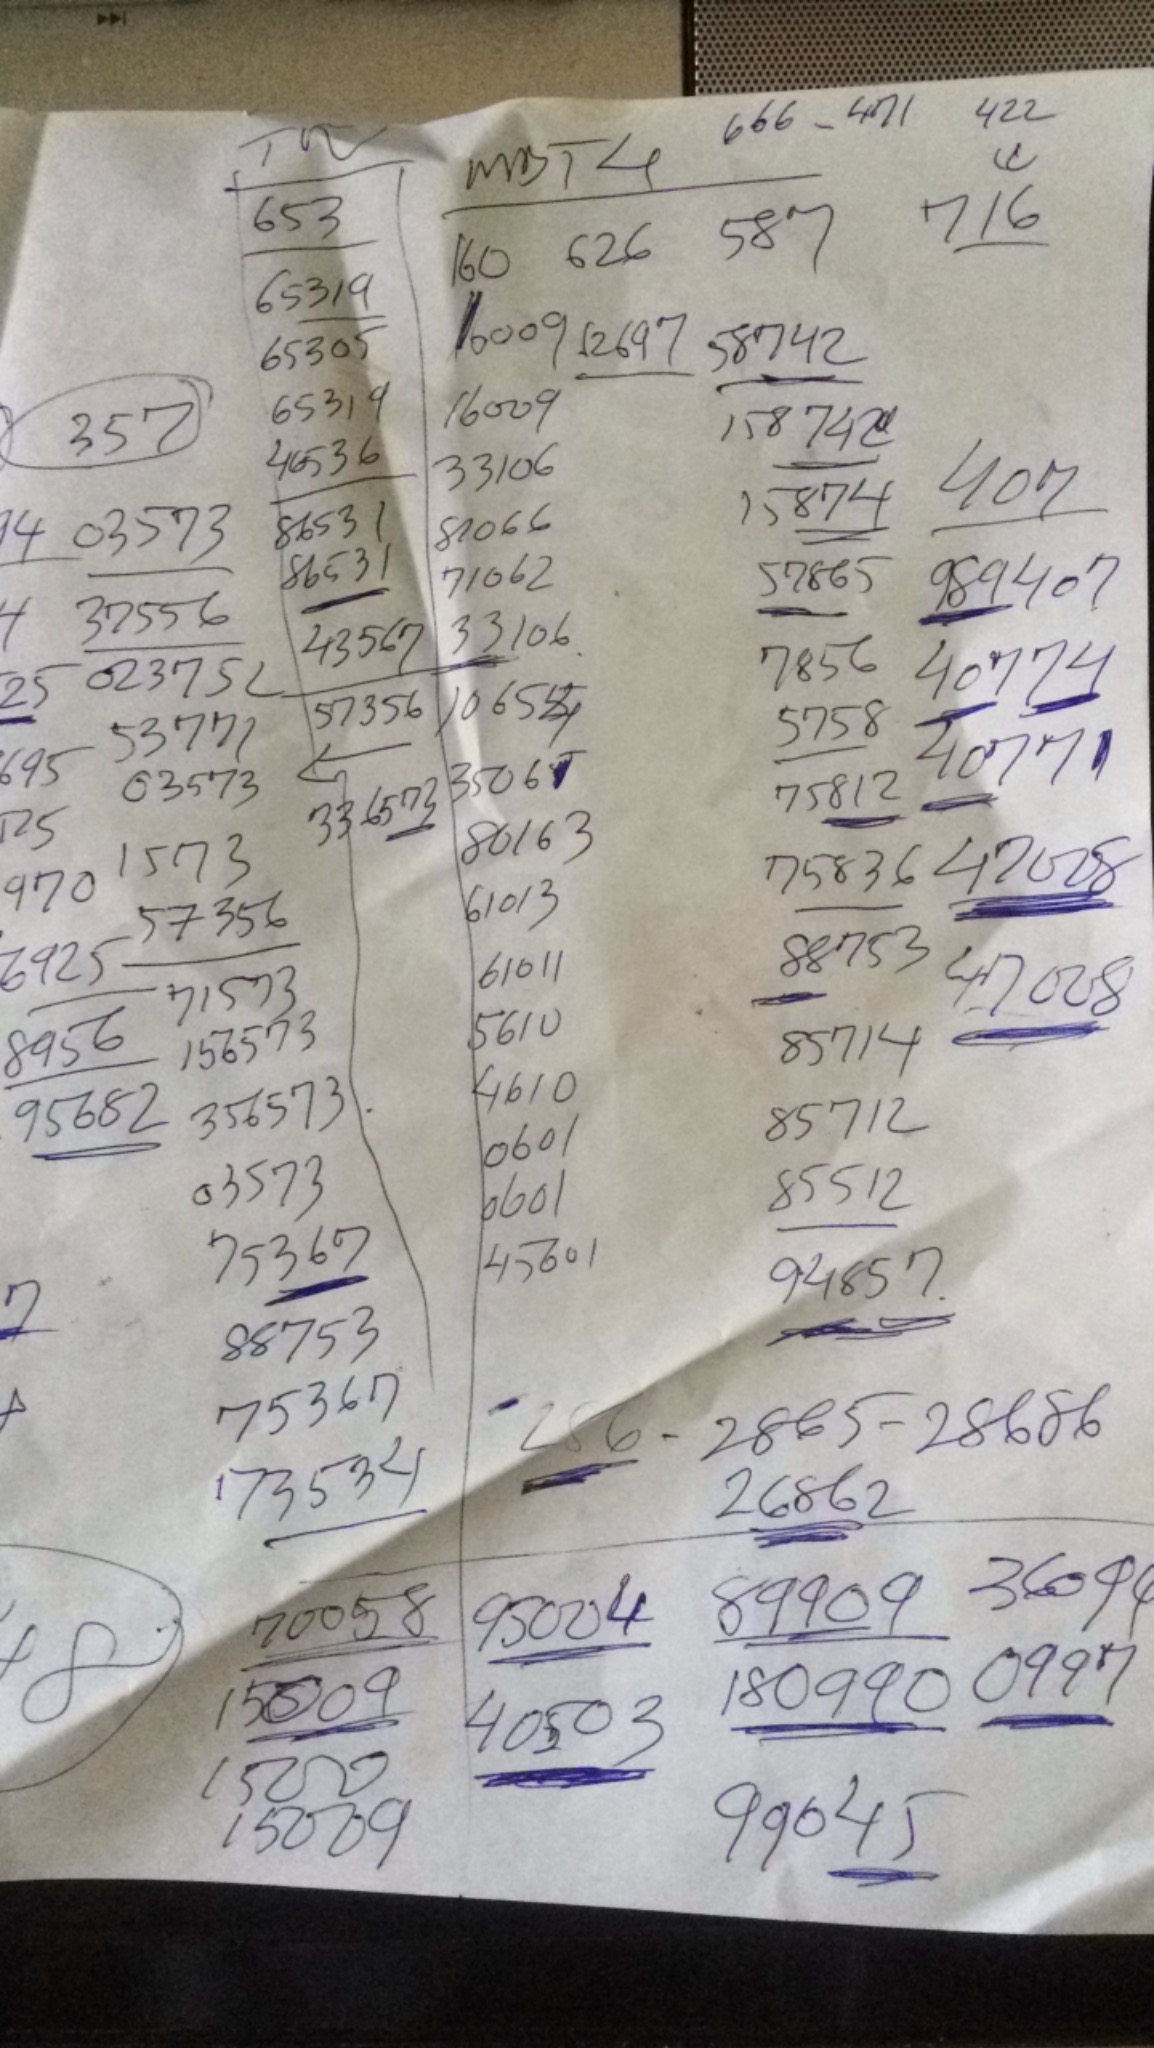 666 - 471 422
MBT4
653 160 626 587 716
65319 16009 12697 58742
65305
65319 16009 158742
357
46536 33106 15874 407
14 03573 86531 82066 57865 989407
86531 71062
4 37556 43567 33106 7856 40774
25 023752 57356 5758
53771 35061 75812 40771
695 03573 336573
725 80163 75836 47008
970 1573 61013
57356 88753 47008
6925 71573 61011
8956 156573 5610 85714
95682 356573 4610 85712
03573 0601 85512
75367 0601
7 45601 94857
88753
75367 286 - 2865 - 28686
173534 26862
70058 95004 89909 36094
48 15009 40503 180990 0997
1500
15009 99045